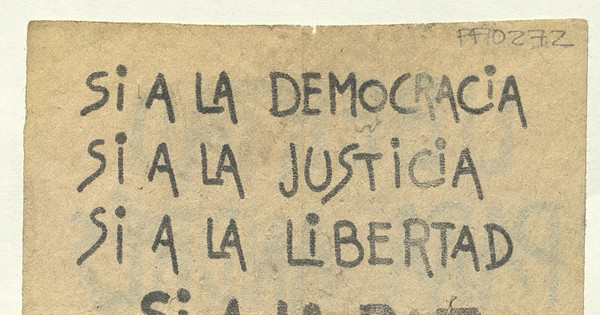 PF10272
Si A LA DEMOCRACiA
Si A LA JUSTiCiA
Si A LA LiBERTAD
Si A LA